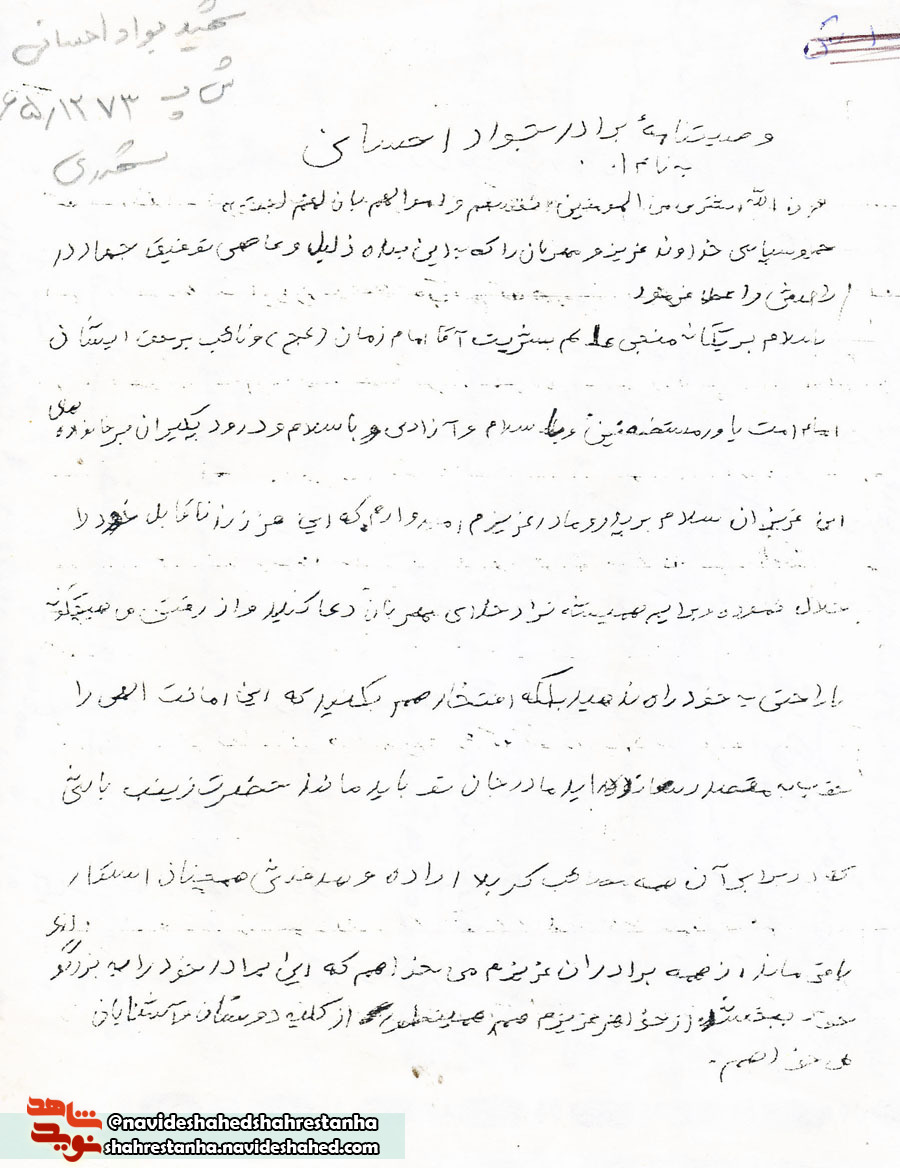 شهید جواد احسانی
ش پ ۶۵/۱۲۷۳
شهرری
وصیتنامهٔ برادر جواد احسانی
به نام ا..
ان الله اشتری من المومنین انفسهم و اموالهم بان لهم الجنة
حمد و سپاس خداوند عزیز و مهربان را که به این بنده ذلیل و عاصی توفیق جهاد در
راهش را عطا فرمود
با سلام بر یگانه منجی عالم بشریت آقا امام زمان (عج) و نائب بر حق ایشان
امام امت یاور مستضعفین و با سلام و آزادی و با سلام و درود بیکران بر خانواده های
این عزیزان سلام بر پدر و مادر عزیزم امیدوارم که این فرزند ناقابل خود را
حلال نموده و برایم همیشه نزد خدای مهربان دعا کنید و از رفتن من هیچگونه
ناراحتی به خود راه ندهید بلکه افتخار هم بکنید که این امانت الهی را
خوب به مقصد رسانده اید مادر جان تو باید مانند حضرت زینب باشی
که در برابر آن همه مصائب کربلا اراده و هدفش همچنان استوار
باقی ماند از همه برادران عزیزم می خواهم که این برادر خود را به بزرگواری
خود ببخشند از خواهر عزیزم هم همینطور از کلیه دوستان و آشنایان
می خواهم.
شاهد
نوید
©navideshahedshahrestanha
shahrestanha.navideshahed.com